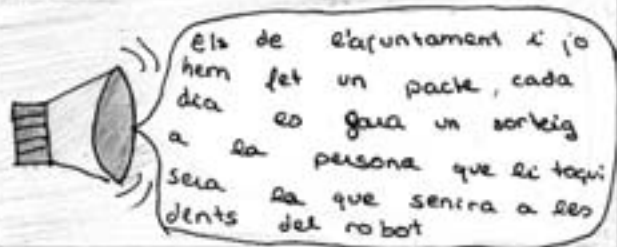 Els de l'ajuntament i jo
hem fet un pacte, cada
dia es farà un sorteig
a la persona que li toqui
serà la que senirà a les
dents del robot